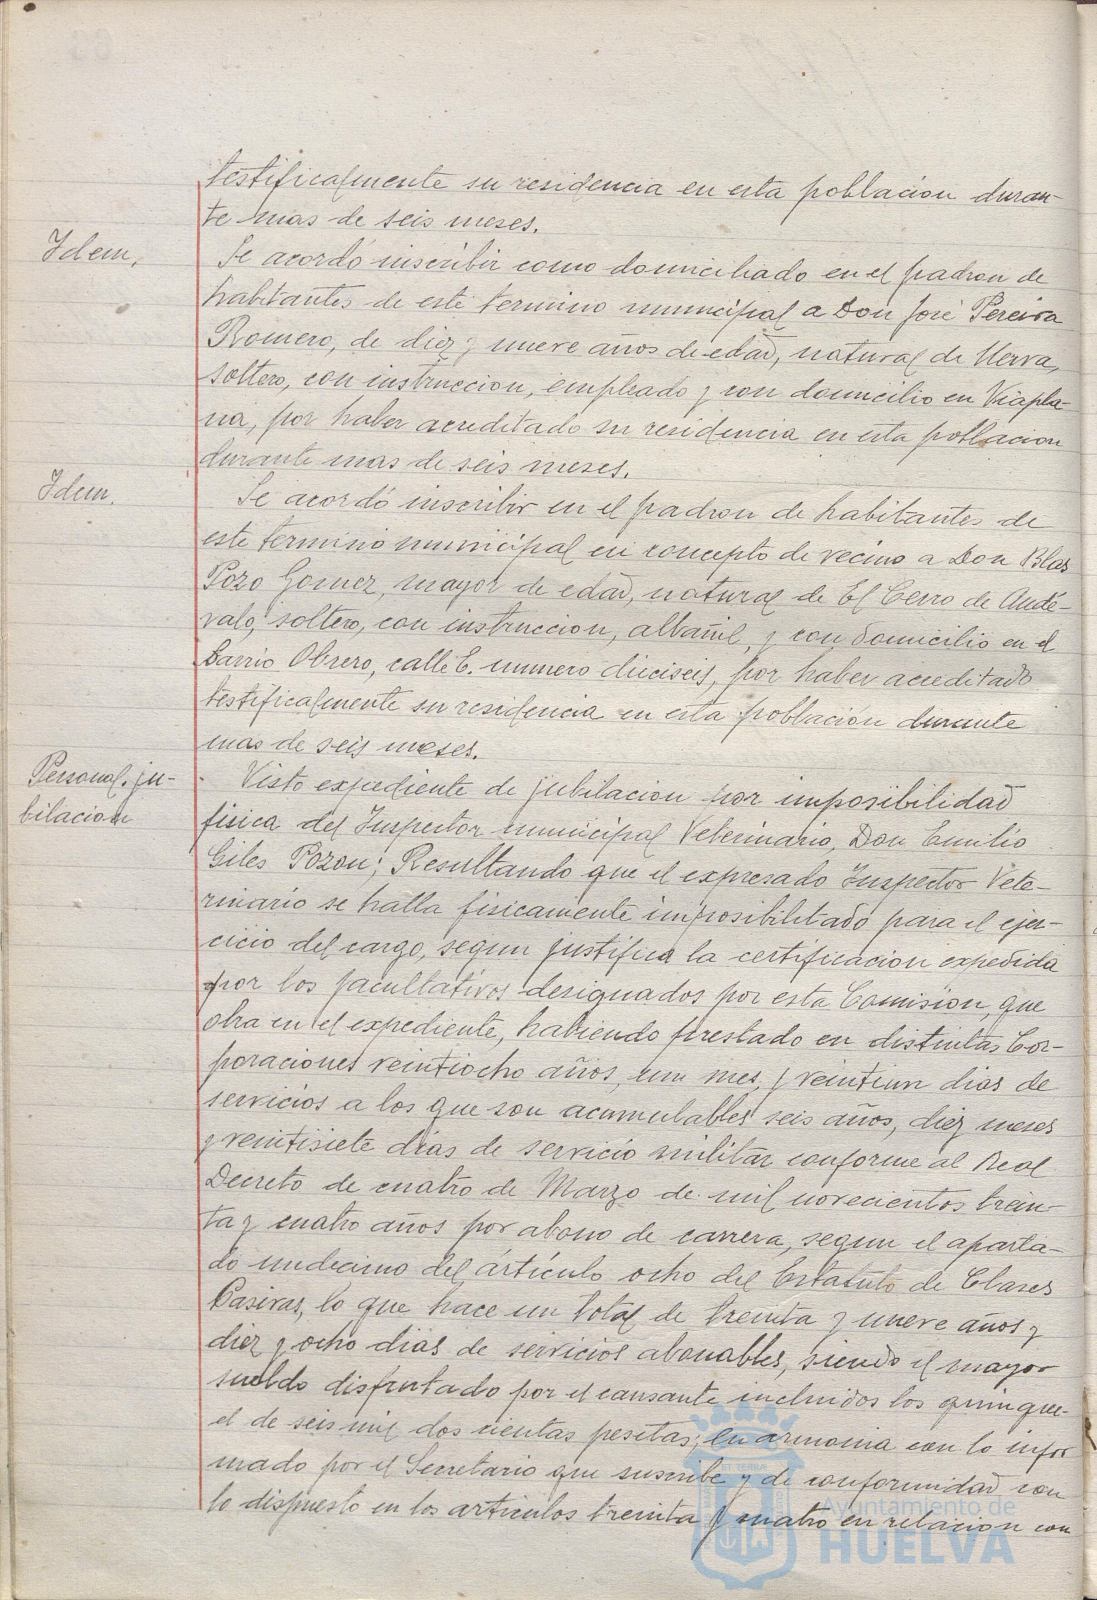 testificalmente su residencia en esta poblacion duran-
te mas de seis meses.
Idem,
Se acordó inscribir como domiciliado en el padron de
habitantes de este termino municipal a Don José Pereira
Romero, de diez y nueve años de edad, natural de Nerva,
soltero, con instruccion, empleado y con domicilio en Viapla-
na, por haber acreditado su residencia en esta poblacion
durante mas de seis meses.
Idem.
Se acordó inscribir en el padron de habitantes de
este termino municipal en concepto de vecino a Don Blas
Pozo Gomez, mayor de edad, natural de El Cerro de Andé-
valo, soltero, con instruccion, albañil, y con domicilio en el
barrio Obrero, calle E. numero dieciseis, por haber acreditado
testificalmente su residencia en esta población durante
mas de seis meses.
Personal. ju-
bilacion
Visto expediente de jubilacion por imposibilidad
fisica del Inspector municipal Veterinario, Don Emilio
Giles Pozon; Resultando que el expresado Inspector Vete-
rinario se halla fisicamente imposibilitado para el ejer-
cicio del cargo, segun justifica la certificacion expedida
por los facultativos designados por esta Comision, que
obra en el expediente, habiendo prestado en distintas Cor-
poraciones veintiocho años, un mes, y veintiun dias de
servicios a los que son acumulables seis años, diez meses
y veintisiete dias de servicio militar conforme al Real
Decreto de cuatro de Marzo de mil novecientos trein-
ta y cuatro años por abono de carrera, segun el aparta-
do undecimo del artículo ocho del Estatuto de Clases
Pasivas, lo que hace un total de treinta y nueve años y
diez y ocho dias de servicios abonables, siendo el mayor
sueldo disfrutado por el causante incluidos los quinque-
el de seis mil dos cientas pesetas; En armonia con lo infor
mado por el Secretario que suscribe y de conformidad con
lo dispuesto en los articulos treinta y cuatro en relacion con
Ayuntamiento de
HUELVA